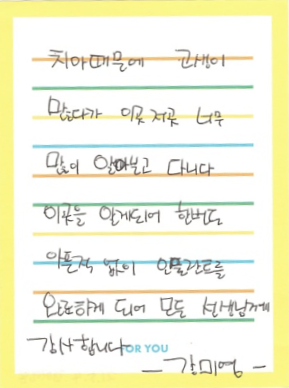 치아때문에 고생이
많다가 이곳저곳 너무
많이 알아보고 다니다
이곳을 알게되어 한번도
아픈적 없이 임플란트를
완료하게 되어 모든 선생님께
감사합니다 FOR YOU
- 강미영 -